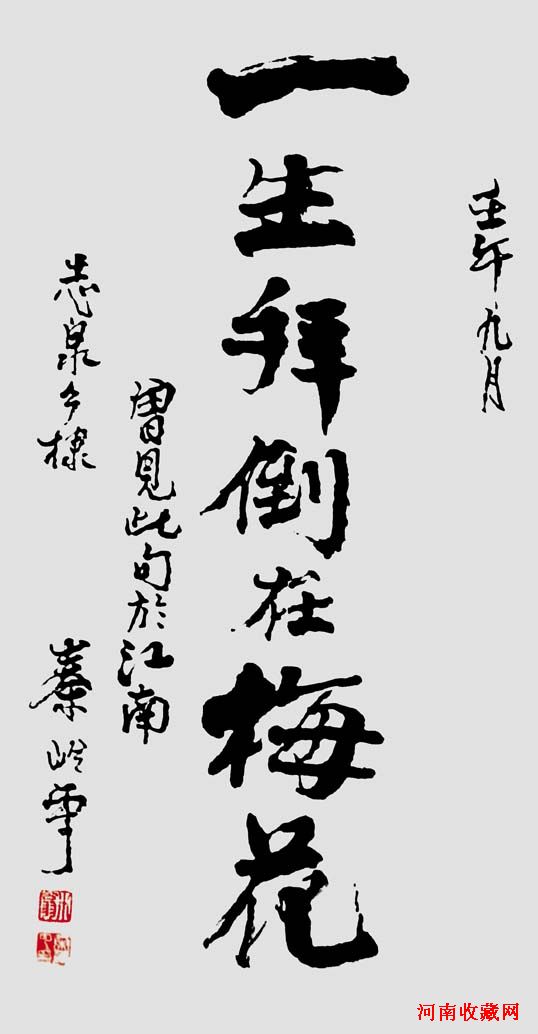 壬午九月
一生拜倒在梅花
曾見此句於江南
志泉乡棣
秦岭雪
河南收藏网